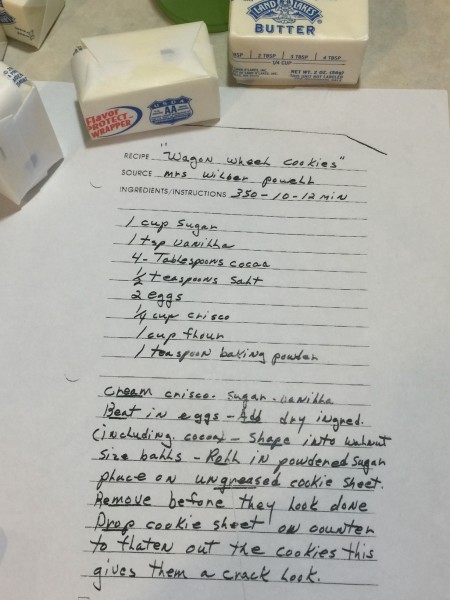 LAND O LAKES
BUTTER
TBSP 2 TBSP 3 TBSP 4 TBSP
1/4 CUP
NET WT. 2 OZ. (56g)
Flavor
PROTECT
WRAPPER
USDA
AA
RECIPE "Wagon wheel cookies"
SOURCE mrs wilber powell
INGREDIENTS/INSTRUCTIONS 350-10-12 min
1 cup Sugar
1 tsp vanilla
4- Tablespoons cocoa
1/2 teaspoons Salt
2 eggs
1/4 cup crisco
1 cup flour
1 teaspoon baking powder
Cream crisco. Sugar. vanilla
Beat in eggs - Add dry ingred.
(including cocoa) - Shape into walnut
size balls - Roll in powdered sugar
place on ungreased cookie sheet.
Remove before they look done
Drop cookie sheet on counter
to flaten out the cookies this
gives them a crack look.